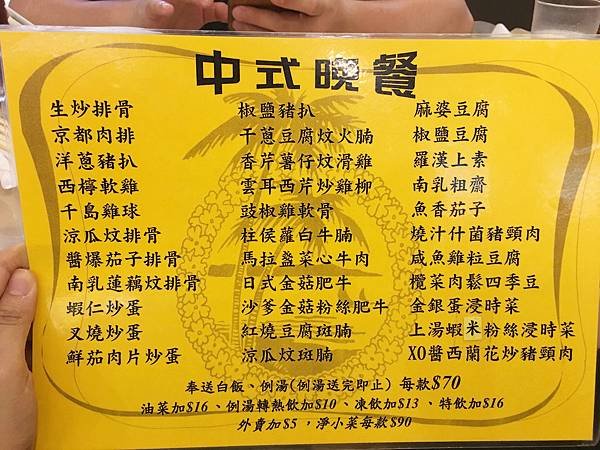 中式晚餐
生炒排骨
京都肉排
洋蔥豬扒
西檸軟雞
千島雞球
涼瓜炆排骨
醬爆茄子排骨
南乳蓮藕炆排骨
蝦仁炒蛋
叉燒炒蛋
鮮茄肉片炒蛋
椒鹽豬扒
千蔥豆腐炆火腩
香芹薯仔炆滑雞
雲耳西芹炒雞柳
豉椒雞軟骨
柱侯蘿白牛腩
馬拉盞菜心牛肉
日式金菇肥牛
沙爹金菇粉絲肥牛
紅燒豆腐斑腩
涼瓜炆斑腩
麻婆豆腐
椒鹽豆腐
羅漢上素
南乳粗齋
魚香茄子
燒汁什菌豬頸肉
咸魚雞粒豆腐
欖菜肉鬆四季豆
金銀蛋浸時菜
上湯蝦米粉絲浸時菜
XO醬西蘭花炒豬頸肉
奉送白飯、例湯(例湯送完即止) 每款$70
油菜加$16、例湯轉熱飲加$10、凍飲加$13、特飲加$16
外賣加$5，淨小菜每款$90